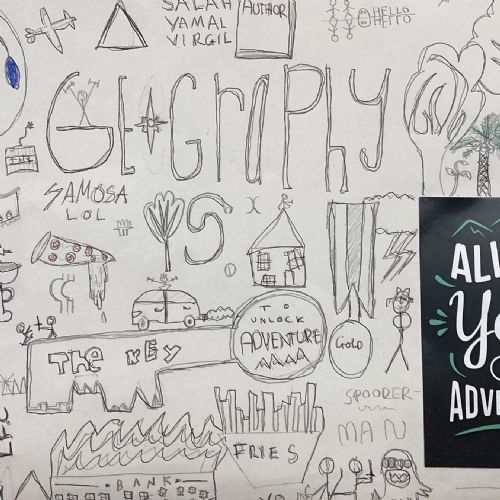 SALAH
YAMAL
VIRGIL
AUTHOR
HELLO
HELLO
GEOGRAPHY
SAMOSA
LOL
IS
TO
UNLOCK
ADVENTURE
THe KEY
GOLD
SPOODER-
MAN
FRIES
BANK